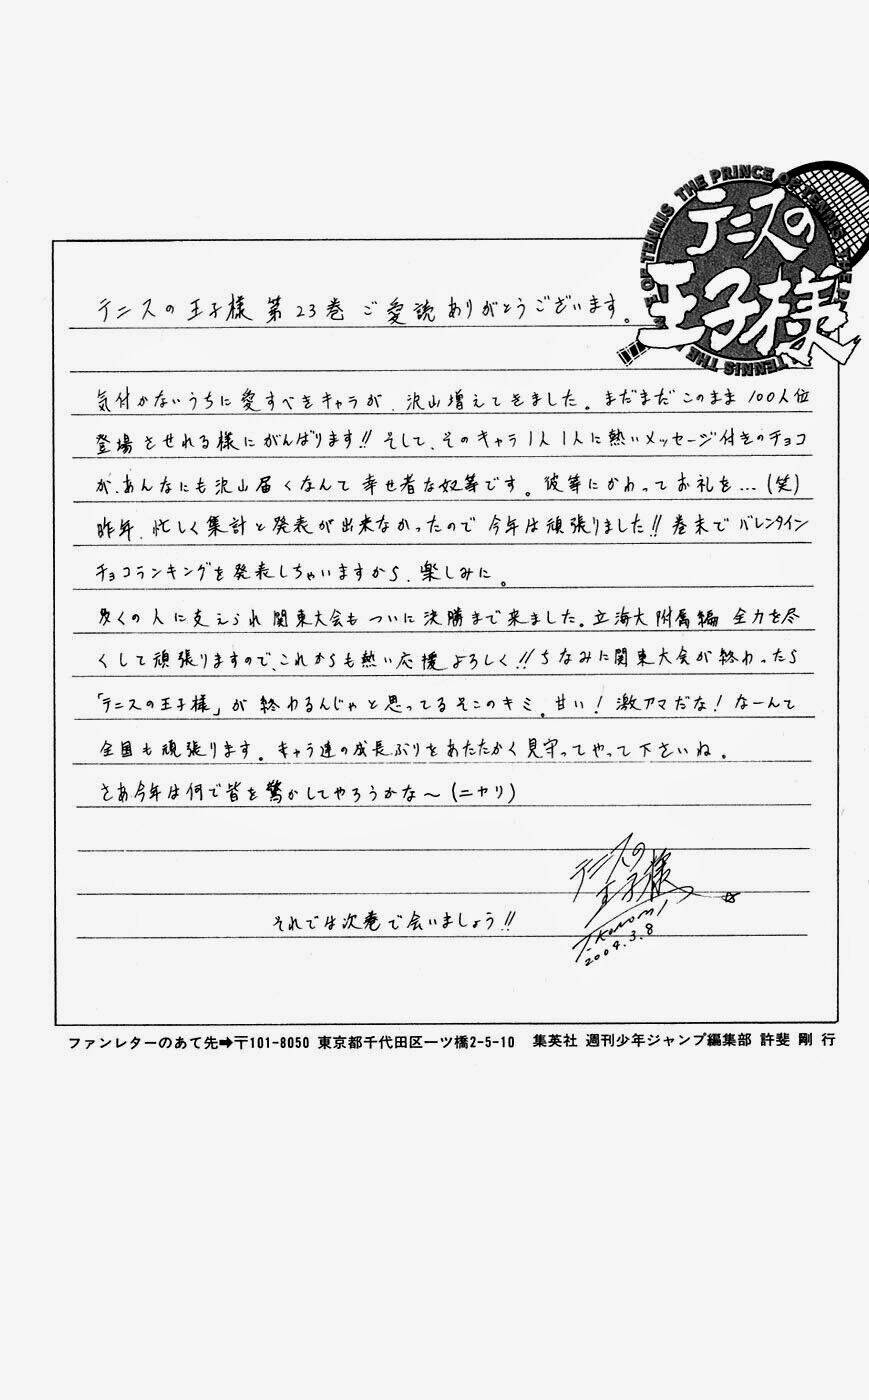 THE PRINCE OF TENNIS
テニスの
王子様
テニスの王子様 第23巻 ご愛読ありがとうございます。
気付かないうちに愛すべきキャラが、沢山増えてきました。まだまだこのまま100人位
登場させれる様にがんばります!! そして、そのキャラ1人1人に熱いメッセージ付きのチョコ
が、あんなにも沢山届くなんて幸せ者な奴等です。彼等にかわってお礼を…(笑)
昨年、忙しく集計と発表が出来なかったので今年は頑張りました!! 巻末でバレンタイン
チョコランキングを発表しちゃいますから、楽しみに。
多くの人に支えられ関東大会もついに決勝まで来ました。立海大附属編 全力を尽
くして頑張りますので、これからも熱い応援よろしく!! ちなみに関東大会が終わったら
「テニスの王子様」が終わるんじゃと思ってるそこのキミ。甘い! 激アマだな! なーんて
全国も頑張ります。キャラ達の成長ぶりをあたたかく見守ってやって下さいね。
さあ今年は何で皆を驚かしてやろうかな〜(ニヤリ)
テニスの
王子様
T.Konomi
2004.3.8
それでは次巻で会いましょう!!
ファンレターのあて先➡〒101-8050 東京都千代田区一ツ橋2-5-10 集英社 週刊少年ジャンプ編集部 許斐 剛 行